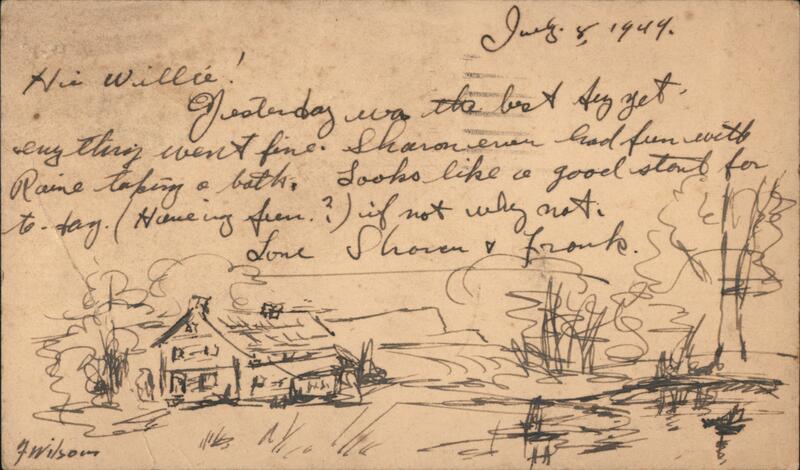 July. 8, 1949.
Hie Willie!
Yesterday was the best day yet.
everything went fine. Sharon even had fun with
Raine taking a bath. Looks like a good start for
to-day. (Haveing fun.?) if not why not.
Love Sharon & Frank.
F Wilson